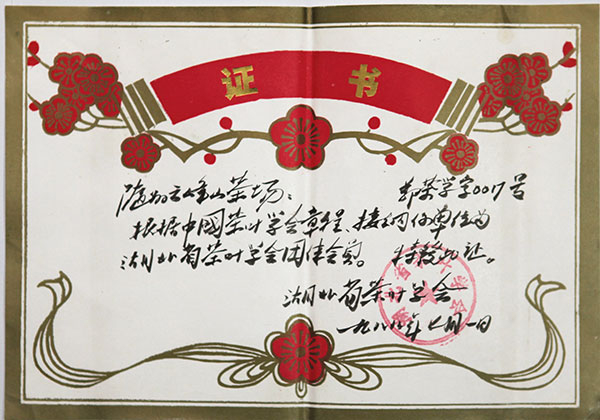 证书
鄂茶学字0017号
云峰山茶场:
根据中國茶叶学会章程、接纳你单位为
湖北省茶叶学会团体会员。特发此证。
湖北省茶叶学会
一九八八年七月一日